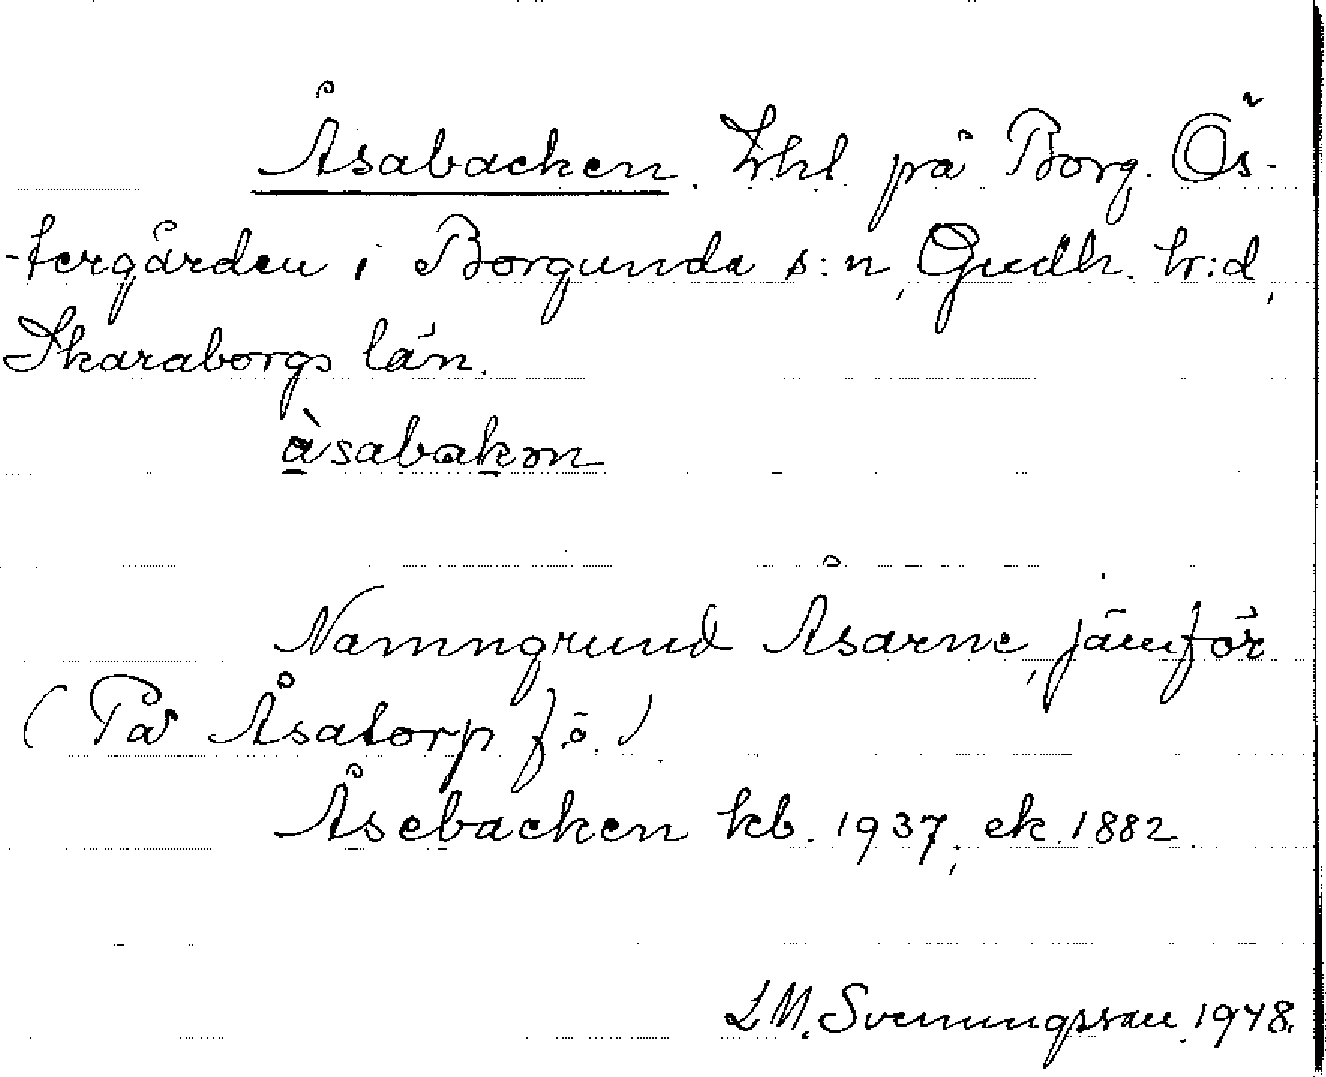 Åsabacken. Lhl. på Borg. Ös-
-tergården i Borgunda s:n, Gudh. hr:d,
Skaraborgs län.
àsabakən
Namngrund Åsarne, jämför
(På Åsatorp f.ö.)
Åsebacken kb. 1937, ek. 1882.
L M. Svenungsson 1948.